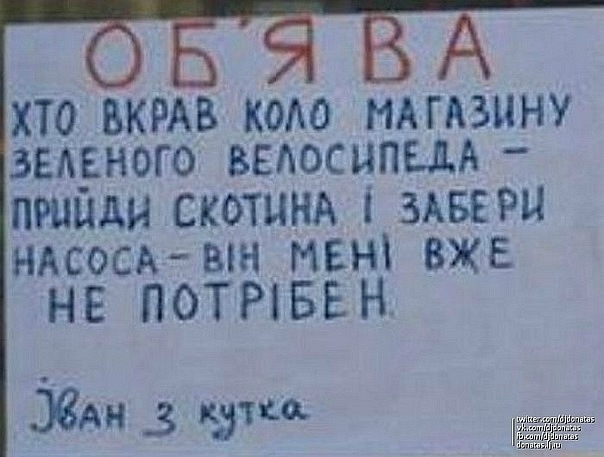 ОБ'ЯВА
ХТО ВКРАВ КОЛО МАГАЗИНУ
ЗЕЛЕНОГО ВЕЛОСИПЕДА –
ПРИЙДИ СКОТИНА І ЗАБЕРИ
НАСОСА – ВІН МЕНІ ВЖЕ
НЕ ПОТРІБЕН.
Іван з кутка
twitter.com/djdonatas
vk.com/djdonatas
fb.com/djdonatas
donatas.lj.ru